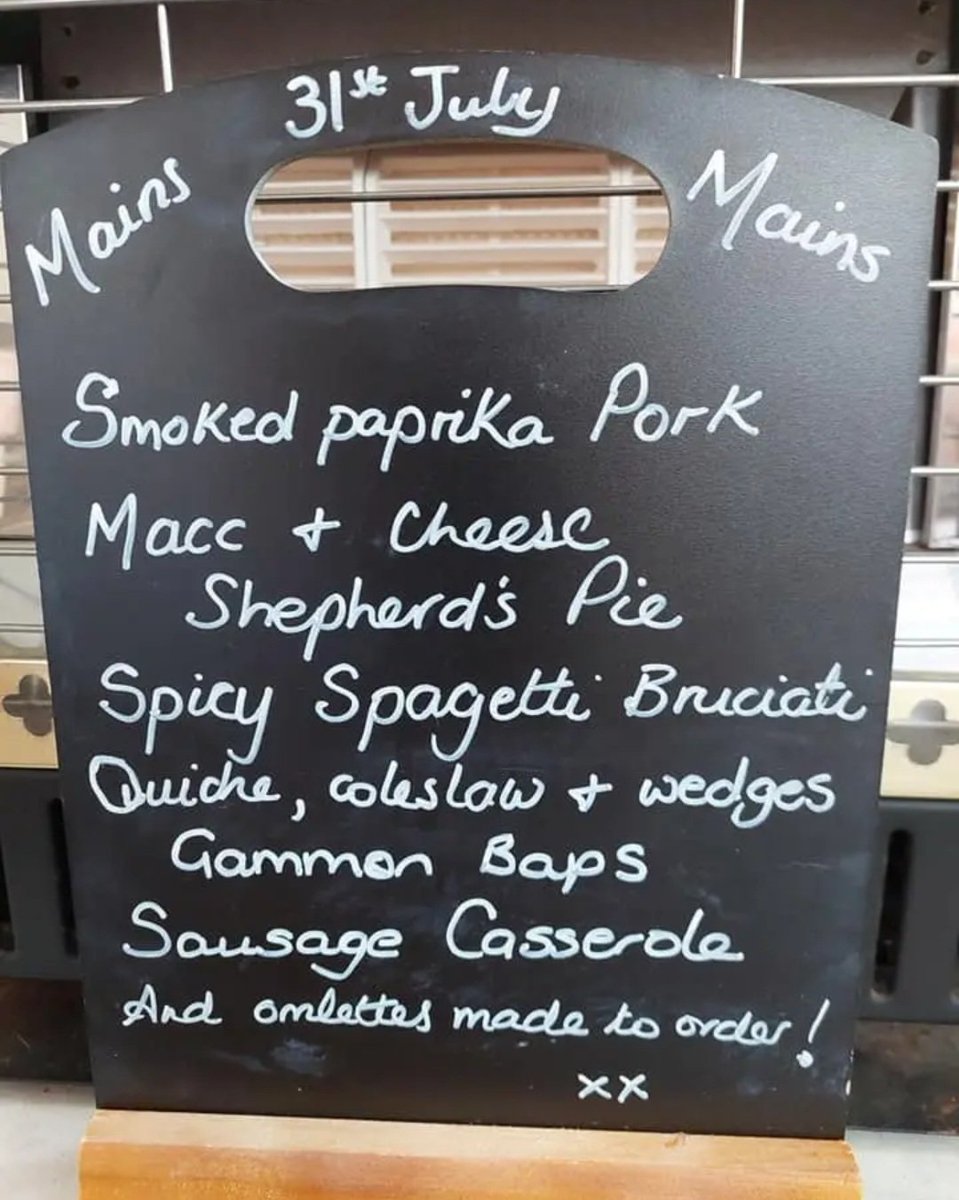 31st July
Mains
Mains
Smoked paprika Pork
Macc + Cheese
Shepherd's Pie
Spicy Spagetti Bruciati
Quiche, coleslaw + wedges
Gammon Baps
Sausage Casserole
And omlettes made to order!
xx